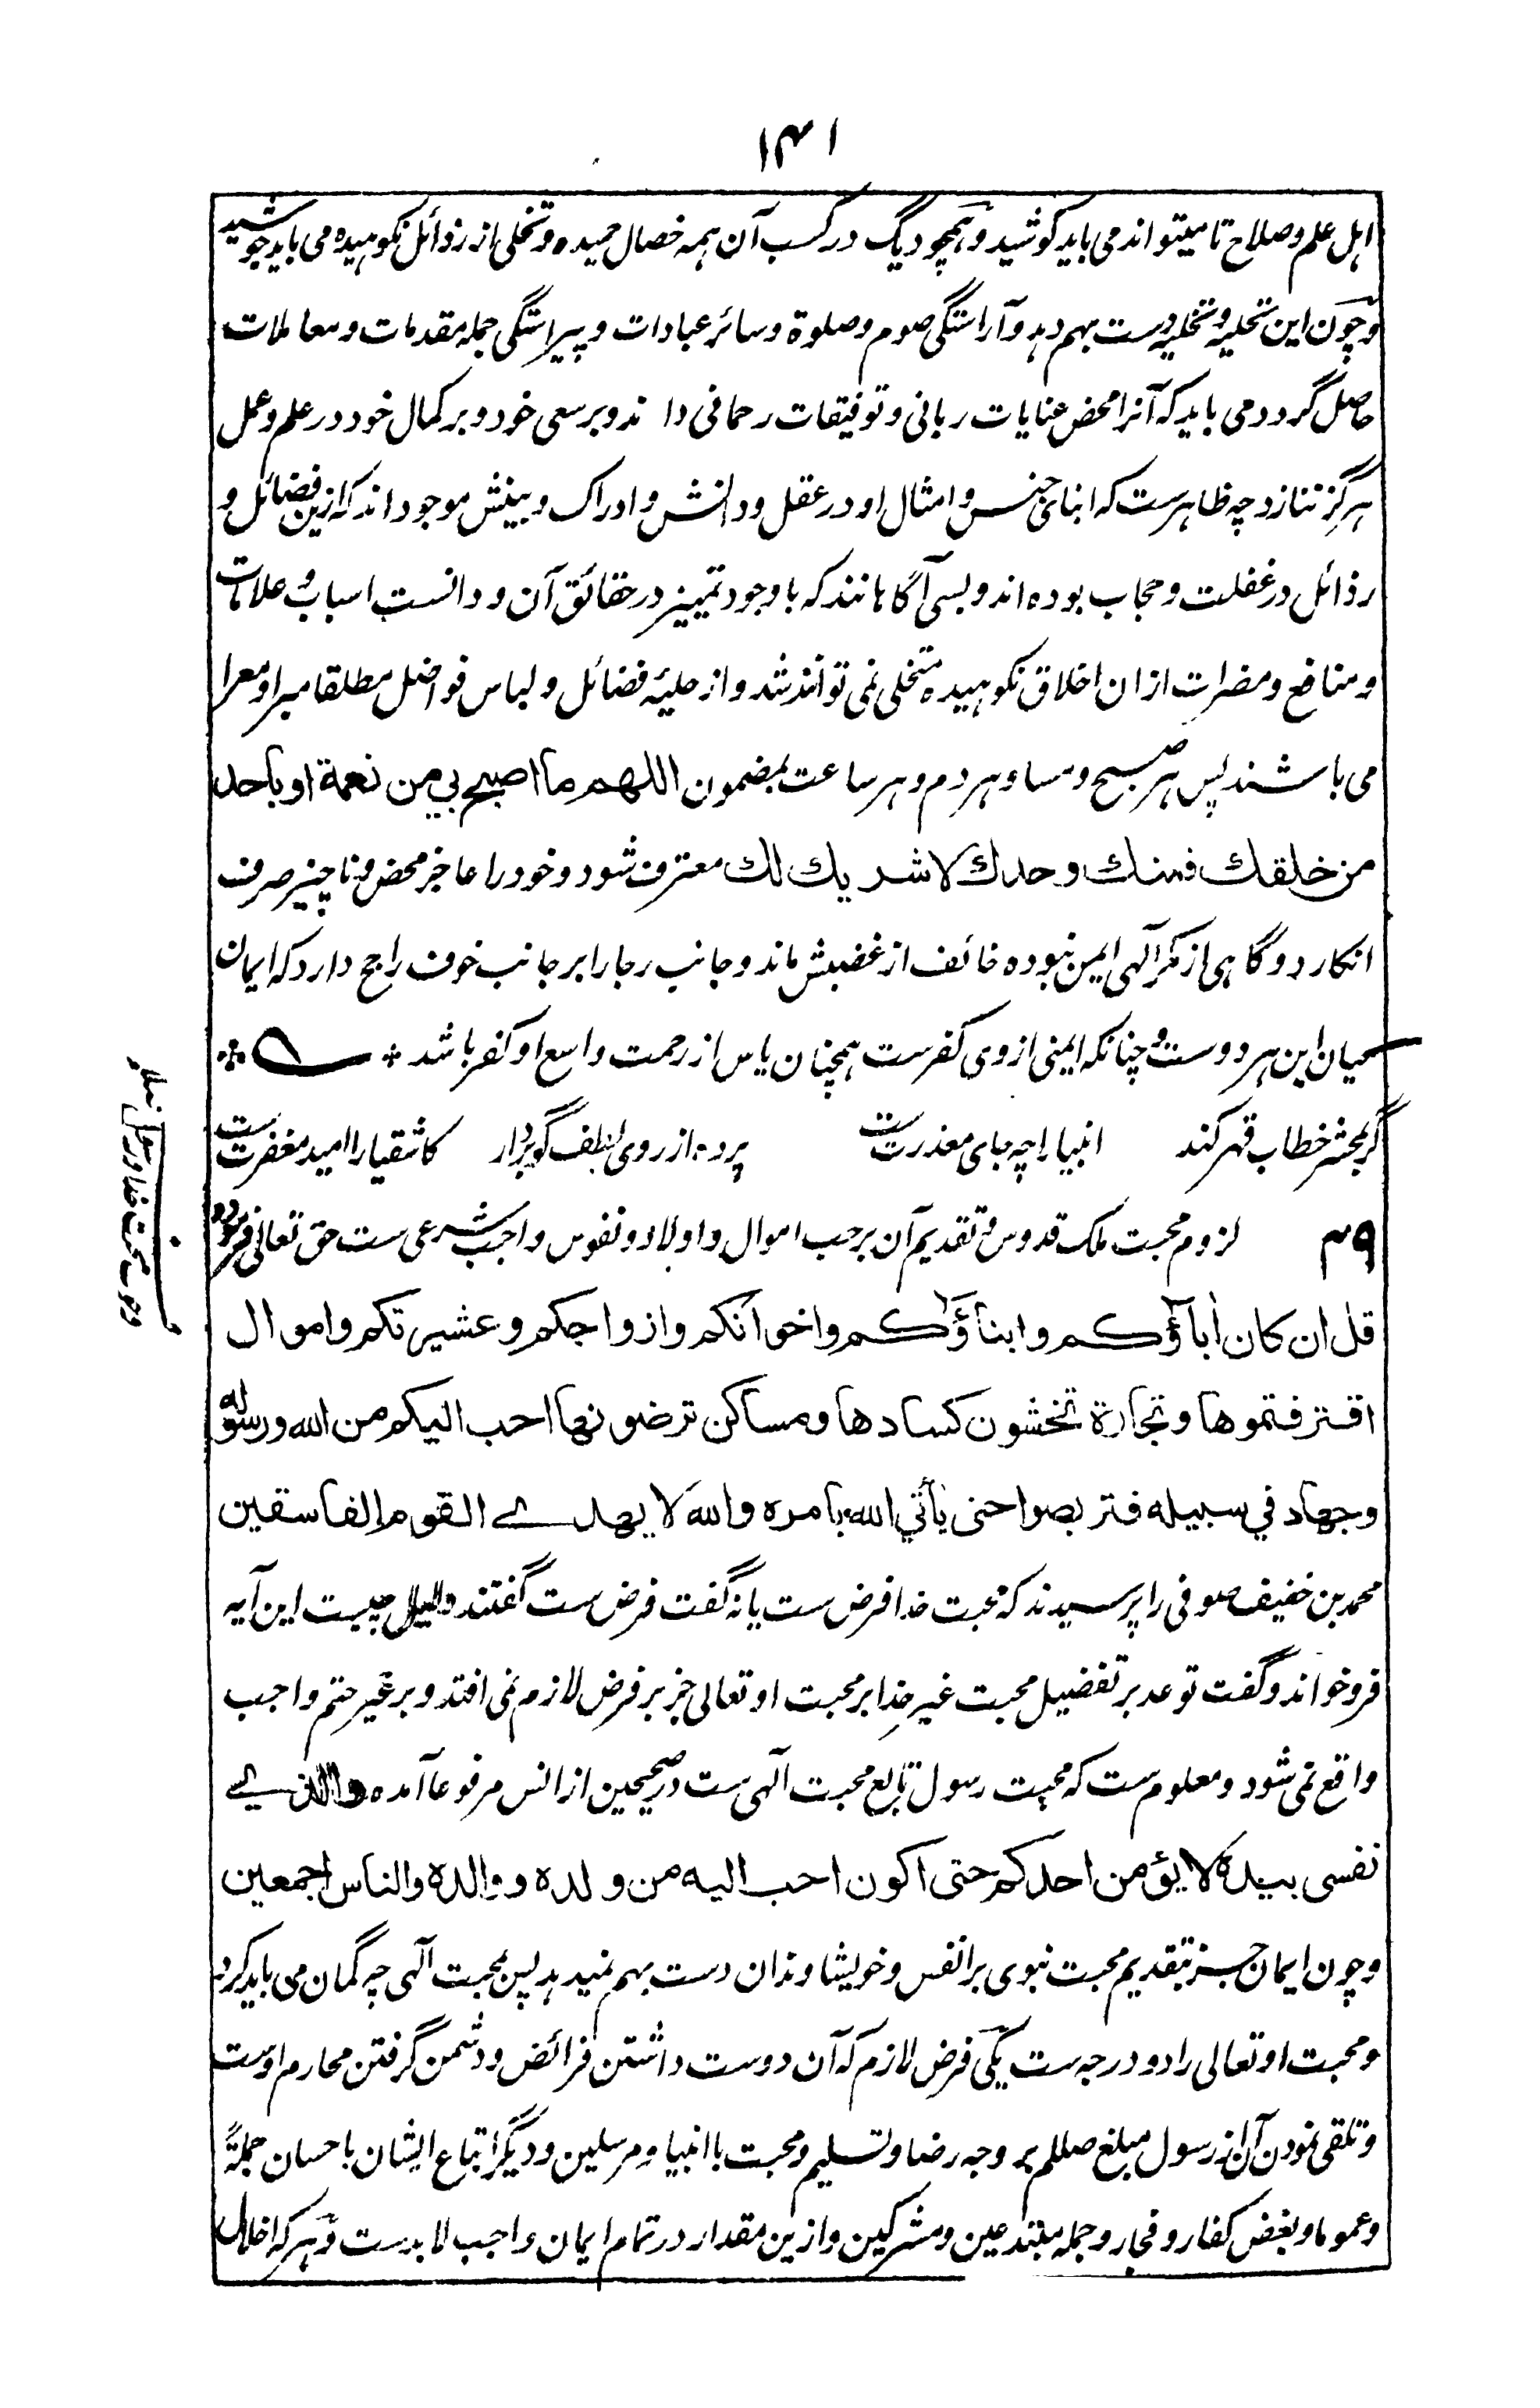 ۱۴۱
اہل علم و صلاح تا میتواند می باید کوشید و ہمچو دیگ در کسب آن ہمہ خصال حمیدہ و تخلی از رذائل نکوہیدہ می باید جوشید
و چون این تحلیہ و تخلیہ دست بہم دہد و آراستگی صوم و صلوة و سائر عبادات و پیراستگی جملہ مقدمات و معاملات
حاصل گردد می باید کہ آنرا محض عنایات ربانی و توفیقات رحمانی داند و بر سعی خود و بر کمال خود در علم و عمل
ہرگز ننازد چہ ظاہرست کہ ابنای جنس و امثال او در عقل و دانش و ادراک و بینش موجود اند کہ ازین فضائل و
رذائل در غفلت و حجاب بودہ اند و بسی آگاہانند کہ باوجود تمییز در حقائق آن و دانست اسباب و علامات
و منافع و مضرات از ان اخلاق نکوہیدہ متخلی نمی توانند شد و از حلیۂ فضائل و لباس فواضل مطلقا مبرا و معرا
می باشند پس ہر صبح و مسا و ہر دم و ہر ساعت بمضمون اللهم ما اصبح بي من نعمة او باحد
من خلقك فمنك وحدك لا شريك لك معترف شود و خود را عاجز محض و ناچیز صرف
انکارد و گاہی از مکر آلہی ایمن نبودہ خائف از غضبش ماند و جانب رجا را بر جانب خوف راجح دارد کہ ایمان
میان این ہر دوست و چنانکہ ایمنی از وی کفرست ہمچنان یاس از رحمت واسع او کفر باشد
گر بمحشر خطاب قہر کند انبیا را چہ جای معذرت ست پردہ از روی لطف گو بردار کاشقیا را امید مغفرت ست
۳۹ لزوم محبت ملک قدوس و تقدیم آن بر حب اموال و اولاد و نفوس واجب شرعی ست حق تعالی فرمودہ
قل ان كان اباؤكم وابناؤكم واخوانكم وازواجكم وعشيرتكم واموال
اقترفتموها وتجارة تخشون كسادها ومساكن ترضونها احب اليكم من الله ورسوله
وجهاد في سبيله فتربصوا حتى يأتي الله بامره والله لا يهدي القوم الفاسقين
محمد بن خفیف صوفی را پرسیدند کہ محبت خدا فرض ست یا نہ گفت فرض ست گفتند دلیل چیست این آیہ
فرو خواند و گفت توعد بر تفضیل محبت غیر خدا بر محبت او تعالی جز بر فرض لازم نمی افتد و بر غیر حتم واجب
واقع نمی شود و معلوم ست کہ محبت رسول تابع محبت آلہی ست در صحیحین از انس مرفوعا آمدہ والذي
نفسى بيده لا يؤمن احدكم حتى اكون احب اليه من ولده ووالده والناس اجمعين
و چون ایمان جز بتقدیم محبت نبوی بر انفس و خویشاوندان دست بہم نمیدہد پس بمحبت آلہی چہ گمان می باید کرد
و محبت او تعالی را دو درجہ ست یکی فرض لازم کہ آن دوست داشتن فرائض و دشمن گرفتن محارم اوست
و تلقی نمودن آن از رسول مبلغ صللم بر وجہ رضا و تسلیم و محبت با انبیا و مرسلین و دیگر اتباع ایشان باحسان جملةً
و عموما و بغض کفار و فجار و جملہ مبتدعین و مشرکین و ازین مقدار در تمام ایمان واجب لابدست و ہر کہ اخلال
محبت خدا و رسول